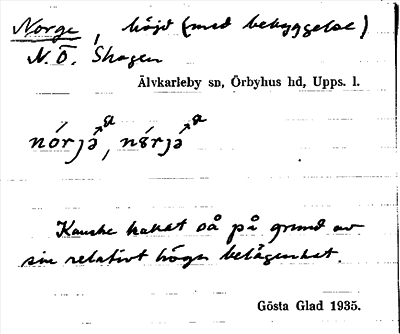 Norge, höjd (med bebyggelse)
N. Ö. Skagen
Älvkarleby sn, Örbyhus hd, Upps. l.
nórjə̀ a, nǿrjə̀ a
Kanske kallat så på grund av
sin relativt höga belägenhet.
Gösta Glad 1935.